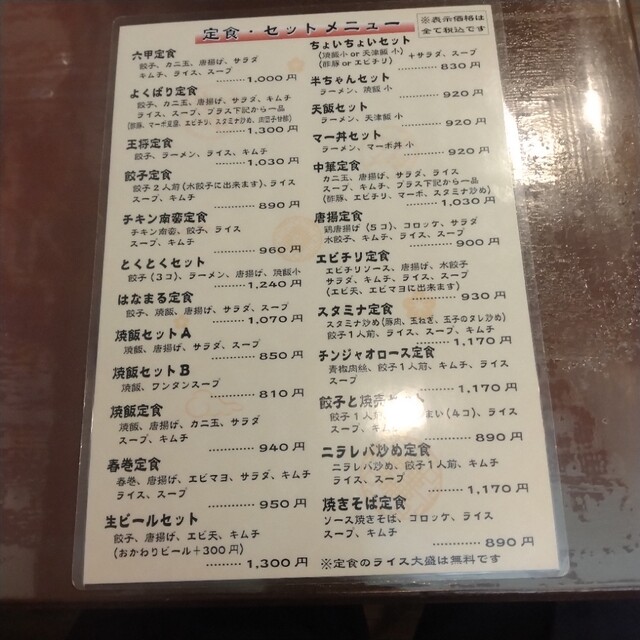 定食・セットメニュー
※表示価格は
全て税込です
六甲定食
餃子、カニ玉、唐揚げ、サラダ
キムチ、ライス、スープ
………1,000円
よくばり定食
餃子、カニ玉、唐揚げ、サラダ、キムチ
ライス、スープ、プラス下記から一品
………1,300円
王将定食
餃子、ラーメン、ライス、キムチ
………1,030円
餃子定食
餃子2人前(水餃子に出来ます)、ライス
スープ、キムチ
………890円
チキン南蛮定食
チキン南蛮、餃子、ライス
スープ、キムチ
………960円
とくとくセット
餃子(3コ)、ラーメン、唐揚げ、焼飯小
………1,240円
はなまる定食
餃子、焼飯、唐揚げ、サラダ、スープ
………1,070円
焼飯セットA
焼飯、唐揚げ、サラダ、スープ
………850円
焼飯セットB
焼飯、ワンタンスープ
………810円
焼飯定食
焼飯、唐揚げ、カニ玉、サラダ
スープ、キムチ
………940円
春巻定食
春巻、唐揚げ、エビマヨ、サラダ、キムチ
ライス、スープ
………950円
生ビールセット
餃子、唐揚げ、エビ天、キムチ
(おかわりビール+300円)
………1,300円
ちょいちょいセット
(焼飯小 or 天津飯 小)
(酢豚 or エビチリ)
+サラダ、スープ
………830円
半ちゃんセット
ラーメン、焼飯 小
………920円
天飯セット
ラーメン、天津飯 小
………920円
マー丼セット
ラーメン、マーボ丼 小
………920円
中華定食
カニ玉、唐揚げ、サラダ、ライス
スープ、キムチ、プラス下記から一品
(酢豚、エビチリ、マーボ、スタミナ炒め)
………1,030円
唐揚定食
鶏唐揚げ(5コ)、コロッケ、サラダ
水餃子、キムチ、ライス、スープ
………900円
エビチリ定食
エビチリソース、唐揚げ、水餃子
サラダ、キムチ、ライス、スープ
(エビ天、エビマヨに出来ます)
………930円
スタミナ定食
スタミナ炒め(豚肉、玉ねぎ、玉子のタレ炒め)
餃子1人前、ライス、スープ、キムチ
………1,170円
チンジャオロース定食
青椒肉絲、餃子1人前、キムチ、ライス
スープ
………1,170円
餃子と焼売セット
餃子1人前、まい(4コ)、ライス
スープ、キムチ
………890円
ニラレバ炒め定食
ニラレバ炒め、餃子1人前、キムチ
ライス、スープ
………1,170円
焼きそば定食
ソース焼きそば、コロッケ、ライス
スープ、キムチ
………890円
※定食のライス大盛は無料です